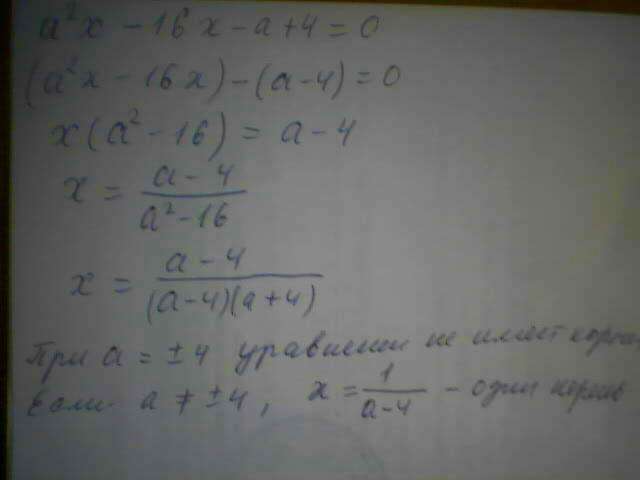 a²x - 16x - a + 4 = 0
(a²x - 16x) - (a - 4) = 0
x(a² - 16) = a - 4
x = \frac{a - 4}{a² - 16}
x = \frac{a - 4}{(a - 4)(a + 4)}
При a = ±4 уравнение не имеет корн
Если a ≠ ±4, x = \frac{1}{a - 4} - один корень